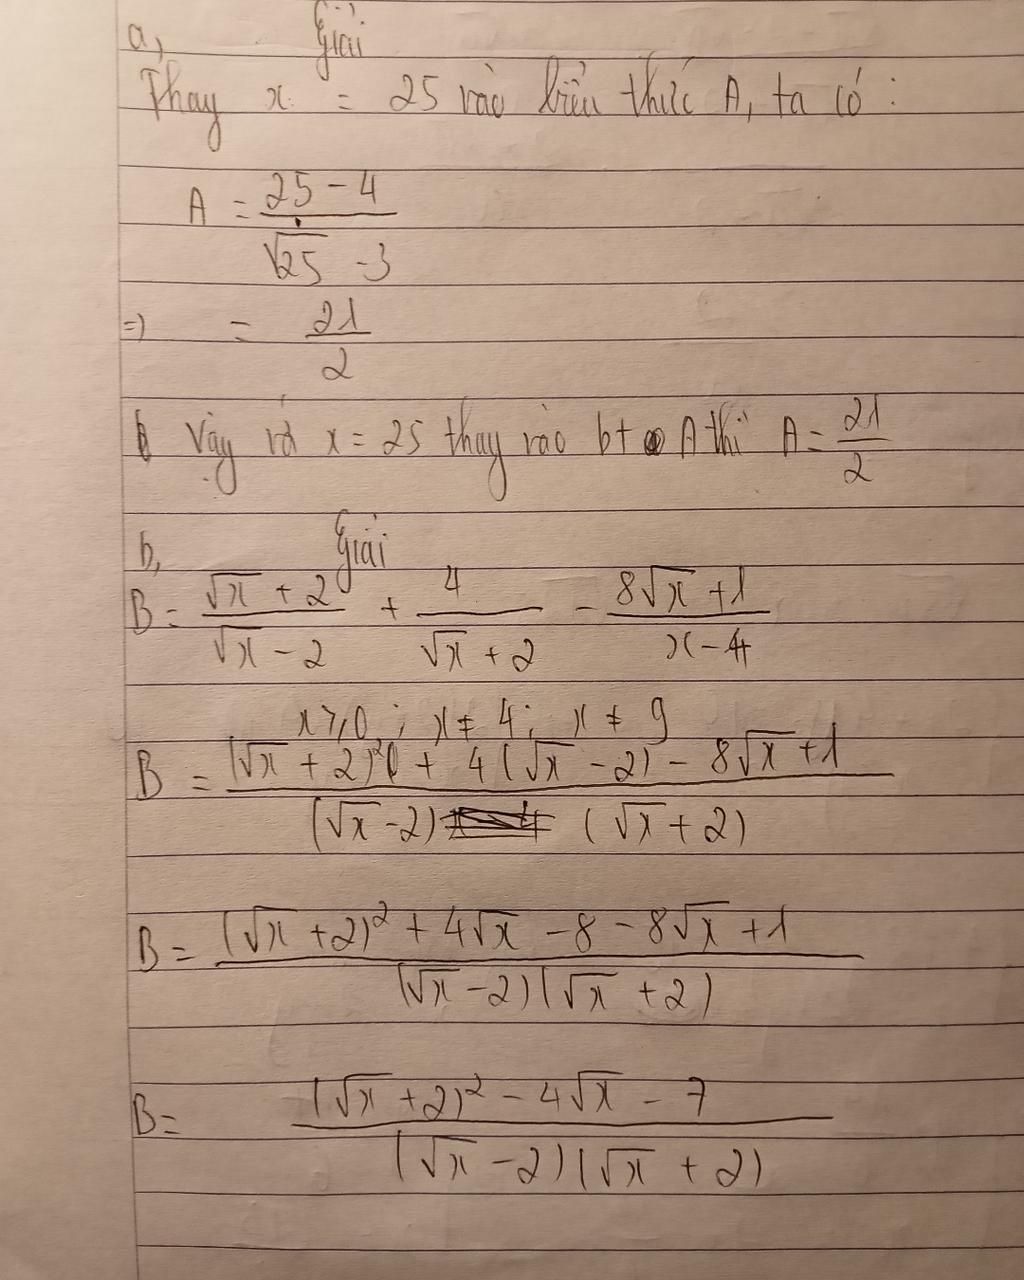 a, Giải
Thay x = 25 vào biểu thức A, ta có :
A = \frac{25 - 4}{\sqrt{25} - 3}
=> = \frac{21}{2}
Vậy với x = 25 thay vào bt A thì A = \frac{21}{2}
b, Giải
B = \frac{\sqrt{x} + 2}{\sqrt{x} - 2} + \frac{4}{\sqrt{x} + 2} - \frac{8\sqrt{x} + 1}{x - 4}
x ≥ 0 ; x ≠ 4 ; x ≠ 9
B = \frac{(\sqrt{x} + 2)^2 + 4(\sqrt{x} - 2) - 8\sqrt{x} + 1}{(\sqrt{x} - 2)(\sqrt{x} + 2)}
B = \frac{(\sqrt{x} + 2)^2 + 4\sqrt{x} - 8 - 8\sqrt{x} + 1}{(\sqrt{x} - 2)(\sqrt{x} + 2)}
B = \frac{(\sqrt{x} + 2)^2 - 4\sqrt{x} - 7}{(\sqrt{x} - 2)(\sqrt{x} + 2)}